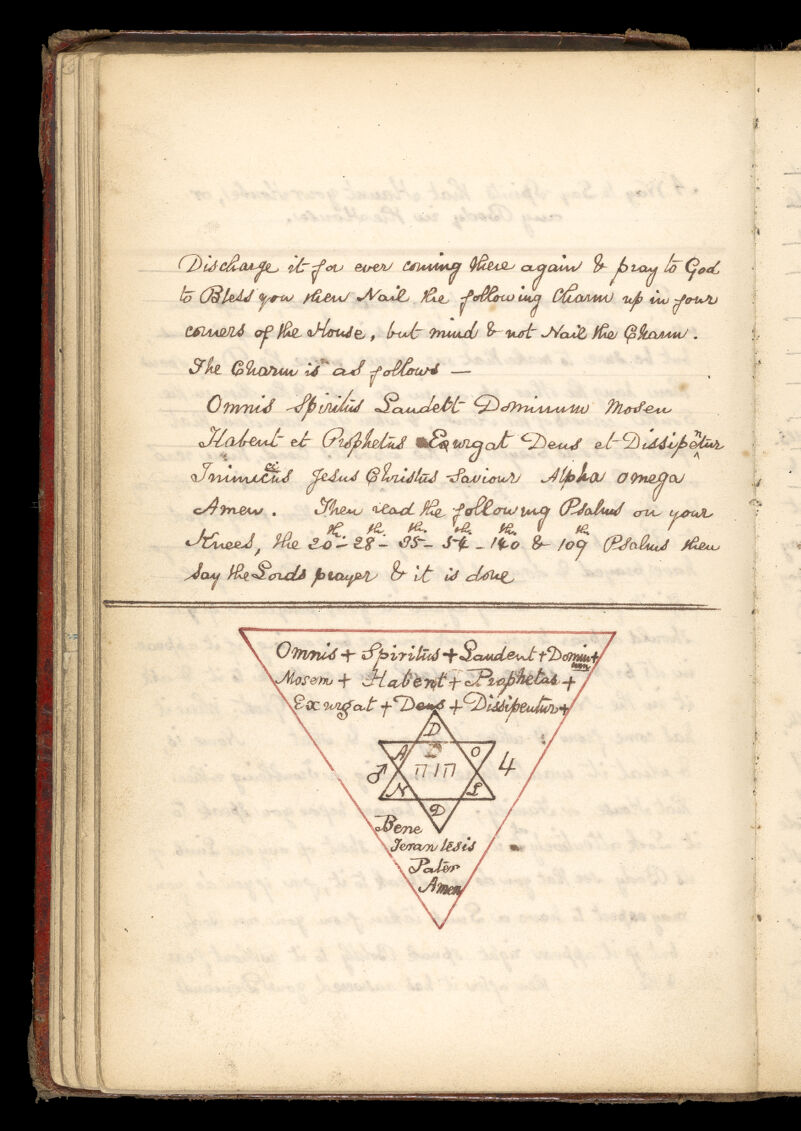 Discharge it for ever coming there again & pray to God
to Bless you then Nail the following Charm up in four
corners of the House, but mind & not Nail the Charm.
The Charm is as follows —
Omnis Spiritus Laudett Dominum Mosen
Habent et Prophetus Exurgat Deus et Dissipentur
Inimicius Jesus Christus Saviour Alpha Omega
Amen. Then read the following Psalms on your
Knees, the 20th - 28th - 35th - 54th - 140th & 109th Psalms then
say the Lords prayer & it is done
Omnis + Spiritus + Laudent + Dominum +
Mosem + Habent + Prophetas +
Exurgat + Deus + Dissipentur +
D
A D O
♂ הוה 4
N L
D
Bene
Jeran lesis
Pater
Amen